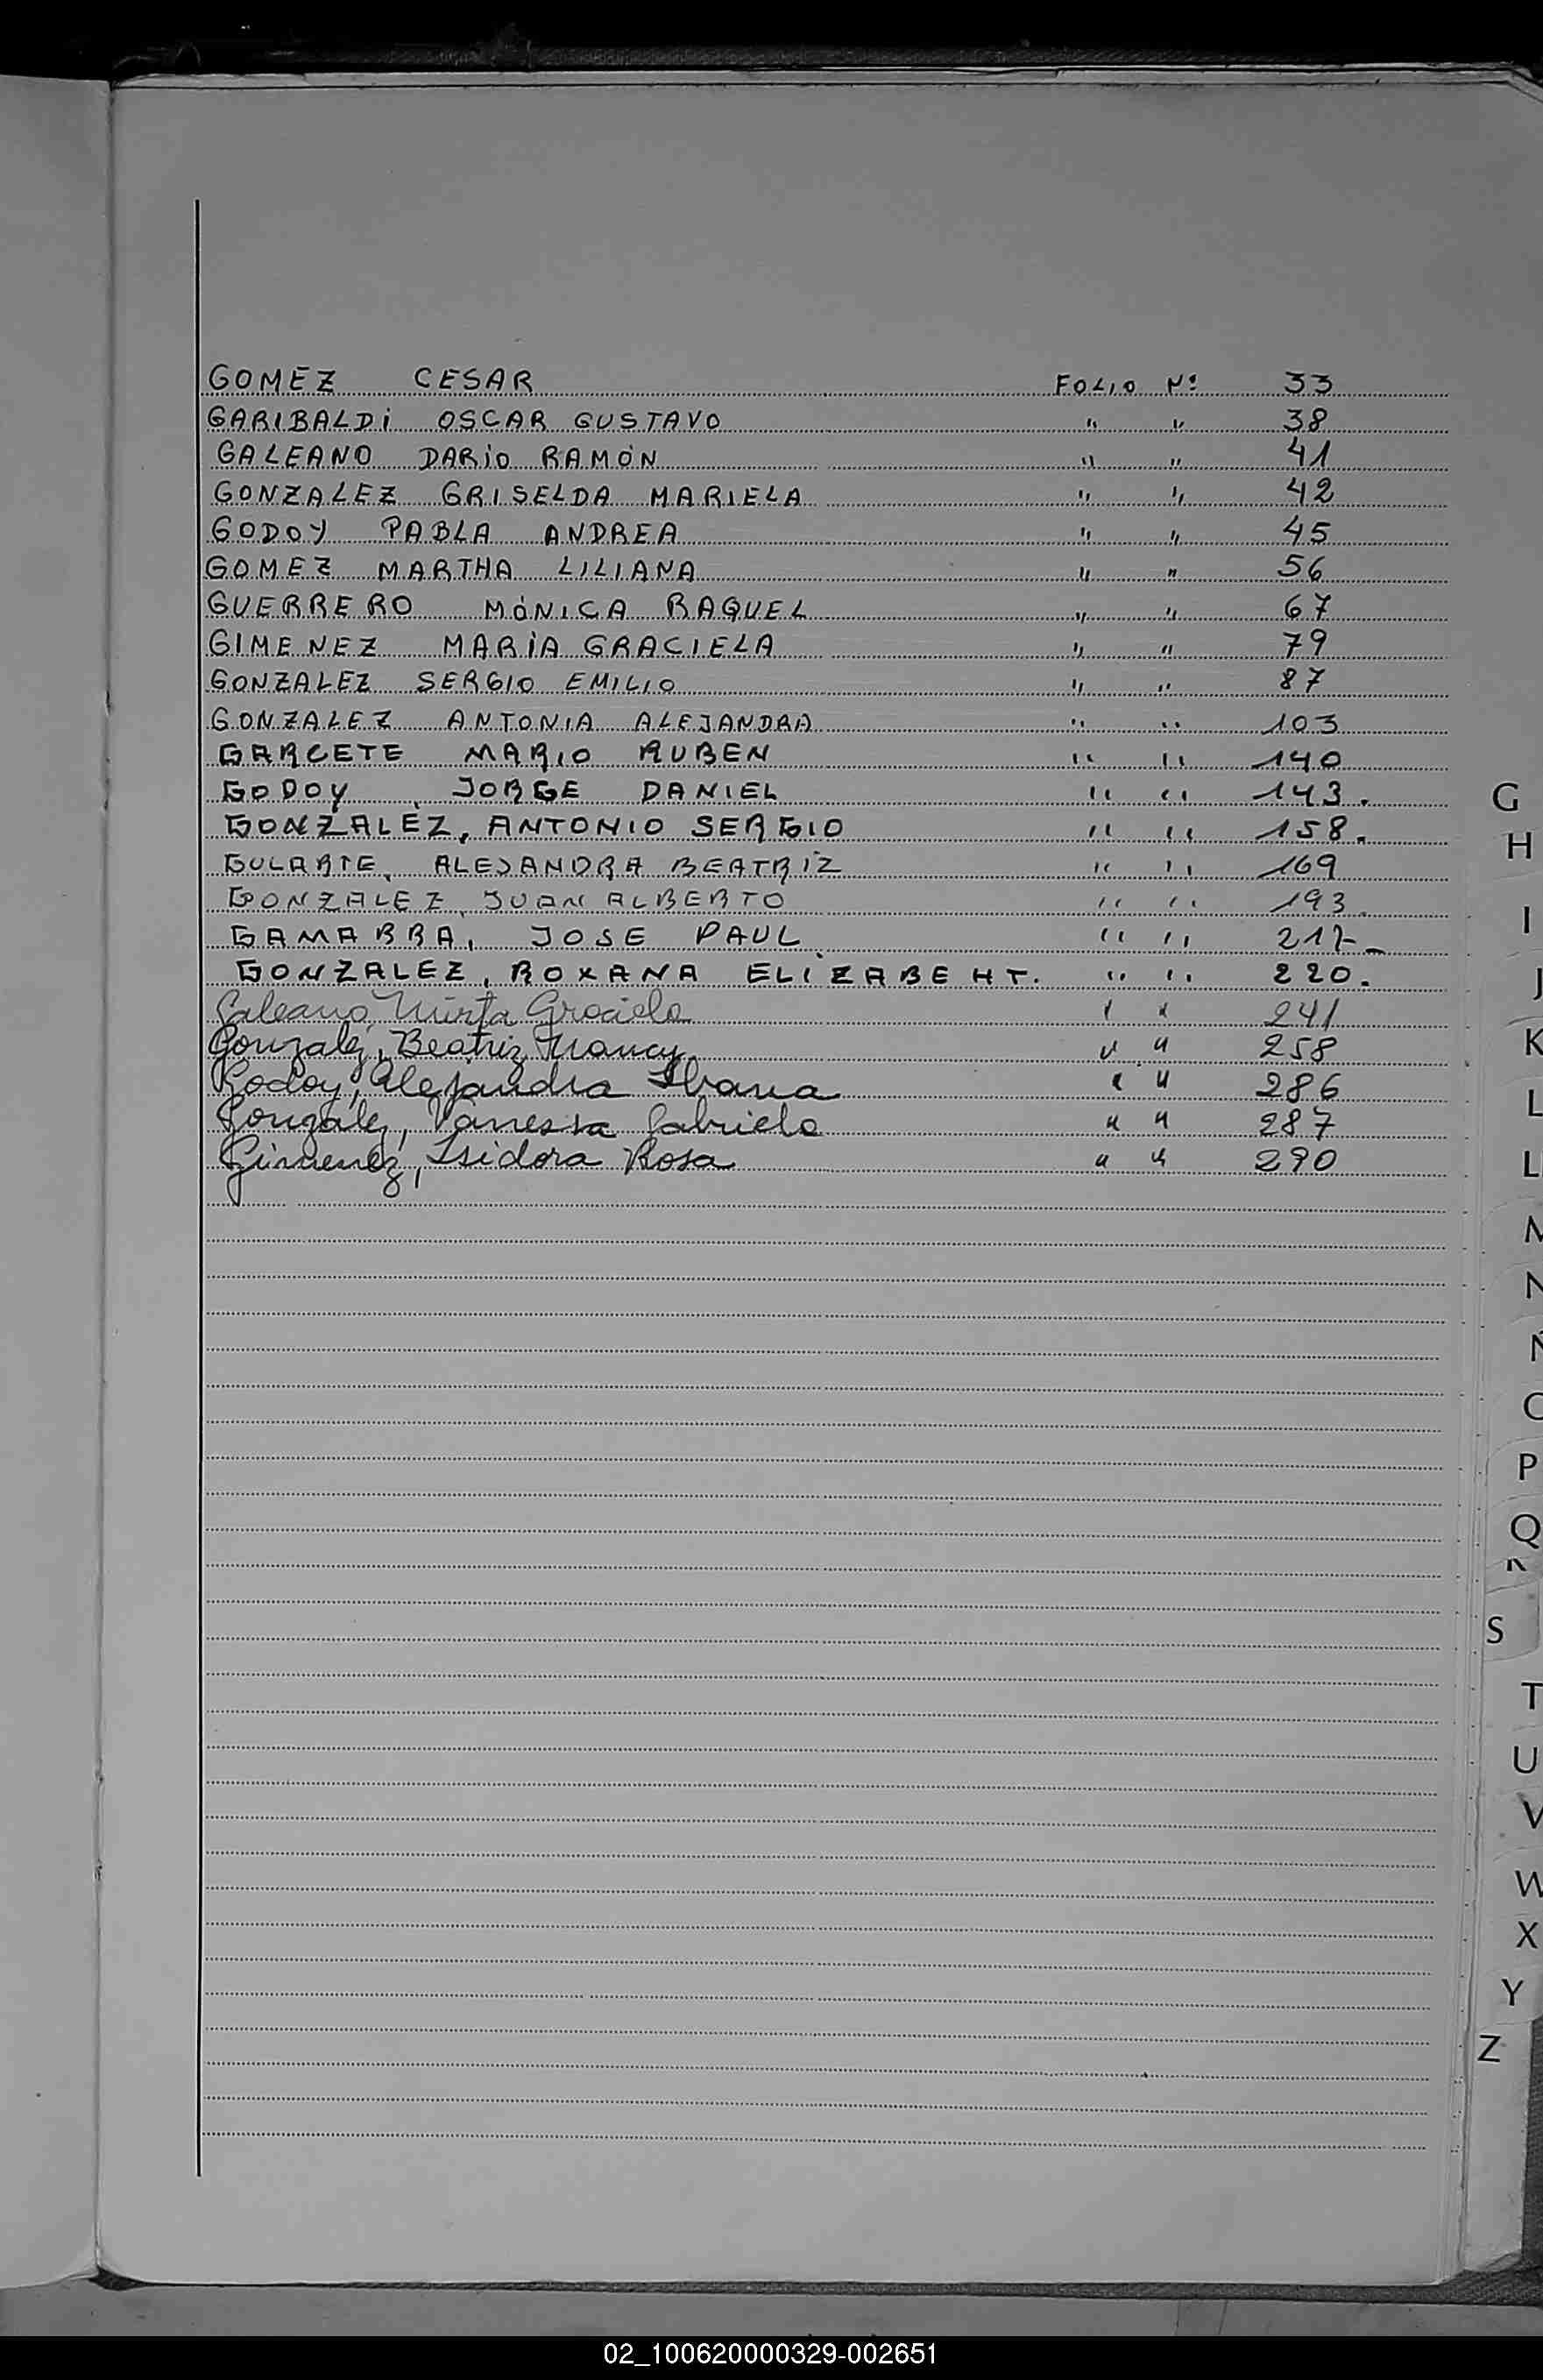 GOMEZ CESAR FOLIO Nº 33
GARIBALDI OSCAR GUSTAVO " " 38
GALEANO DARIO RAMÓN " " 41
GONZALEZ GRISELDA MARIELA " " 42
GODOY PABLA ANDREA " " 45
GOMEZ MARTHA LILIANA " " 56
GUERRERO MÓNICA RAQUEL " " 67
GIMENEZ MARÍA GRACIELA " " 79
GONZALEZ SERGIO EMILIO " " 87
GONZALEZ ANTONIA ALEJANDRA " " 103
GARCETE MARIO RUBEN " " 140
GODOY, JORGE DANIEL " " 143.
GONZALEZ, ANTONIO SERGIO " " 158.
GULARTE, ALEJANDRA BEATRIZ " " 169
GONZALEZ, JUAN ALBERTO " " 193.
GAMARRA, JOSE PAUL " " 217-
GONZALEZ, ROXANA ELIZABEHT. " " 220.
Galeano, Mirta Graciela " " 241
Gonzalez, Beatriz Nancy " " 258
Godoy, Alejandra Ibana " " 286
Gonzalez, Vanessa Gabriela " " 287
Gimenez, Isidora Rosa " " 290
G
H
I
J
K
L
L
M
N
Ñ
O
P
Q
R
S
T
U
V
W
X
Y
Z
02_100620000329-002651